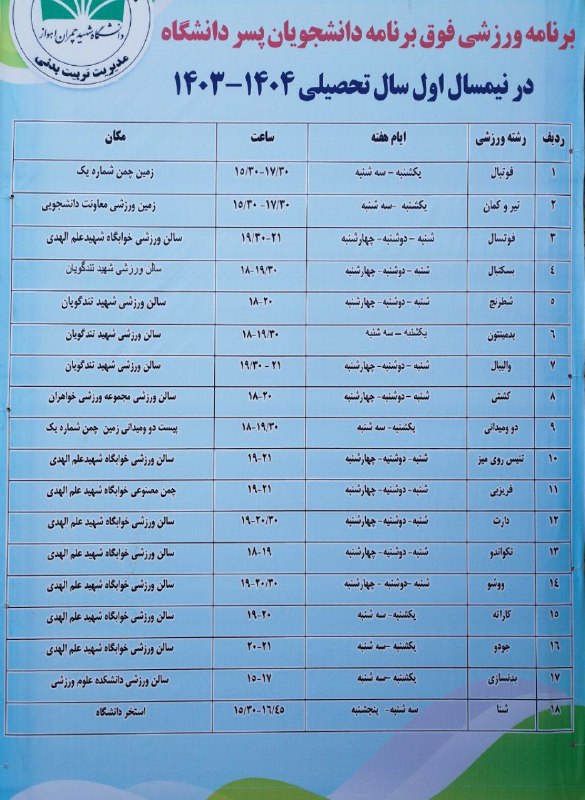 دانشگاه شهید چمران اهواز
مدیریت تربیت بدنی
برنامه ورزشی فوق برنامه دانشجویان پسر دانشگاه
در نیمسال اول سال تحصیلی ۱۴۰۴-۱۴۰۳
ردیف رشته ورزشی ایام هفته ساعت مکان
۱ فوتبال یکشنبه – سه شنبه ۱۵/۳۰-۱۷/۳۰ زمین چمن شماره یک
۲ تیر و کمان یکشنبه -سه شنبه ۱۵/۳۰ -۱۷/۳۰ زمین ورزشی معاونت دانشجویی
۳ فوتسال شنبه -دوشنبه- چهارشنبه ۱۹/۳۰-۲۱ سالن ورزشی خوابگاه شهیدعلم الهدی
۴ بسکتبال شنبه -دوشنبه- چهارشنبه ۱۸-۱۹/۳۰ سالن ورزشی شهید تندگویان
۵ شطرنج شنبه -دوشنبه- چهارشنبه ۱۸-۲۰ سالن ورزشی شهید تندگویان
۶ بدمینتون یکشنبه – سه شنبه ۱۸-۱۹/۳۰ سالن ورزشی شهید تندگویان
۷ والیبال شنبه -دوشنبه- چهارشنبه ۱۹/۳۰-۲۱ سالن ورزشی شهید تندگویان
۸ کشتی شنبه -دوشنبه- چهارشنبه ۱۸-۲۰ سالن ورزشی مجموعه ورزشی خواهران
۹ دو ومیدانی یکشنبه- سه شنبه ۱۸-۱۹/۳۰ پیست دو ومیدانی زمین چمن شماره یک
۱۰ تنیس روی میز شنبه- دوشنبه- چهارشنبه ۱۹-۲۱ سالن ورزشی خوابگاه شهیدعلم الهدی
۱۱ فریزبی شنبه- دوشنبه- چهارشنبه ۱۹-۲۱ چمن مصنوعی خوابگاه شهید علم الهدی
۱۲ دارت شنبه- دوشنبه- چهارشنبه ۱۹-۲۰/۳۰ سالن ورزشی خوابگاه شهید علم الهدی
۱۳ تکواندو شنبه- دوشنبه- چهارشنبه ۱۸-۱۹ سالن ورزشی خوابگاه شهید علم الهدی
۱۴ ووشو شنبه -دوشنبه- چهارشنبه ۱۹-۲۰/۳۰ سالن ورزشی خوابگاه شهید علم الهدی
۱۵ کاراته یکشنبه -سه شنبه ۱۹-۲۰ سالن ورزشی خوابگاه شهید علم الهدی
۱۶ جودو یکشنبه -سه شنبه ۲۰-۲۱ سالن ورزشی خوابگاه شهید علم الهدی
۱۷ بدنسازی یکشنبه -سه شنبه ۱۵-۱۷ سالن ورزشی دانشکده علوم ورزشی
۱۸ شنا سه شنبه- پنجشنبه ۱۵/۳۰-۱۶/۴۵ استخر دانشگاه